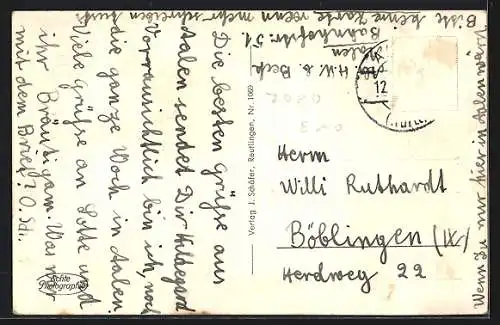 Die besten Grüße aus
Aalen sendet Dir Hildegard
Voraussichtlich bin ich, noch
die ganze Woch in Aalen.
Viele Grüße an Lotte und
ihr Bräutigam. Was mr
mit dem Brief? O. Sdl.
Bitte keine Karte wenn mehr schreiben tust
H. W. d. Beck
Aalen
Bahnhofstr. 51
12
Verlag J. Schäfer, Reutlingen, Nr. 1069
Herrn
Willi Ruthardt
Böblingen (IX)
Herdweg 22
Wenn Du nur hier in Aalen wärst
Echte
Photographie